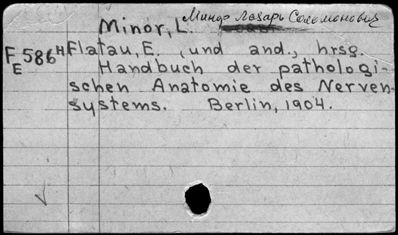 Minor, L. Минор Лазарь Соломонович
F 586 H Flatau, E. (und and., hrsg.
E Handbuch der pathologi-
schen Anatomie des Nerven-
systems. Berlin, 1904.